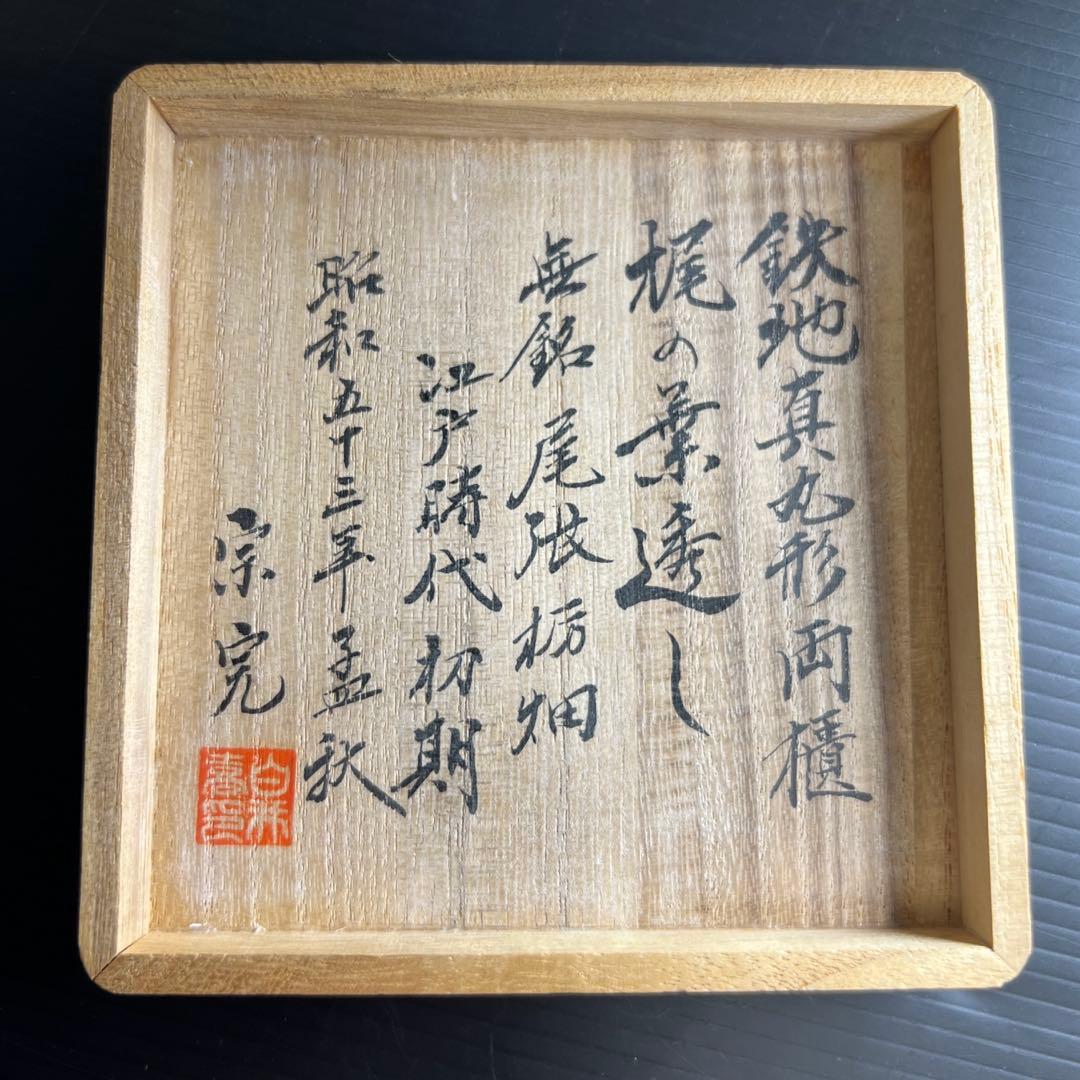 鉄地真丸形両櫃
梶の葉透し
無銘 尾張 栃畑
江戸時代初期
昭和五十三年孟秋
宗完